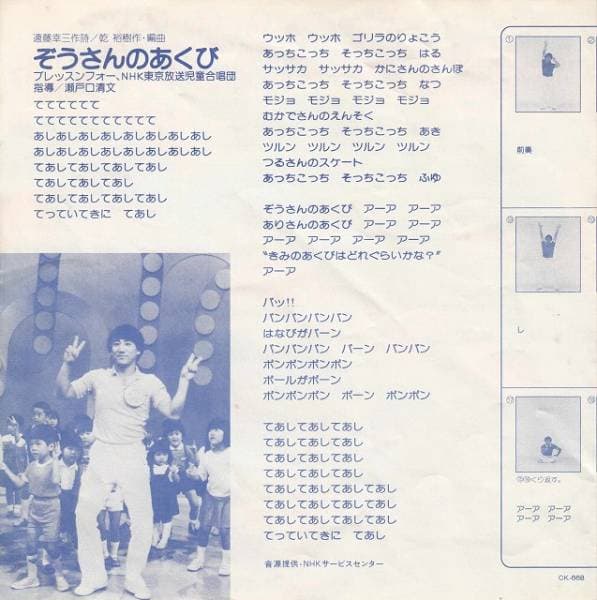 遠藤幸三作詩/乾 裕樹作・編曲
ぞうさんのあくび
ブレッスンフォー、NHK東京放送児童合唱団
指導/瀬戸口清文
てててててて
てててててててててててててて
あしあしあしあしあしあしあしあし
あしあしあしあしあしあしあしあし
てあしてあしてあしてあし
てあしてあしてあし
てあしてあしてあしてあし
てっていてきに てあし
ウッホ ウッホ ゴリラのりょこう
あっちこっち そっちこっち はる
サッサカ サッサカ かにさんのさんぽ
あっちこっち そっちこっち なつ
モジョ モジョ モジョ モジョ
むかでさんのえんそく
あっちこっち そっちこっち あき
ツルン ツルン ツルン ツルン
つるさんのスケート
あっちこっち そっちこっち ふゆ
ぞうさんのあくび アーア アーア
ありさんのあくび アーア アーア
アーア アーア アーア アーア
“きみのあくびはどれぐらいかな?”
アーア
パッ!!
パンパンパンパン
はなびがパーン
パンパンパン パーン パンパン
ポンポンポンポン
ボールがポーン
ポンポンポン ポーン ポンポン
てあしてあしてあし
てあしてあしてあし
てあしてあしてあし
てあしてあしてあし
てあしてあしてあしてあし
てあしてあしてあしてあし
てあしてあしてあしてあし
てっていてきに てあし
音源提供・NHKサービスセンター
①
前奏
し
くり返す。
アーア アーア
アーア アーア
CK-668